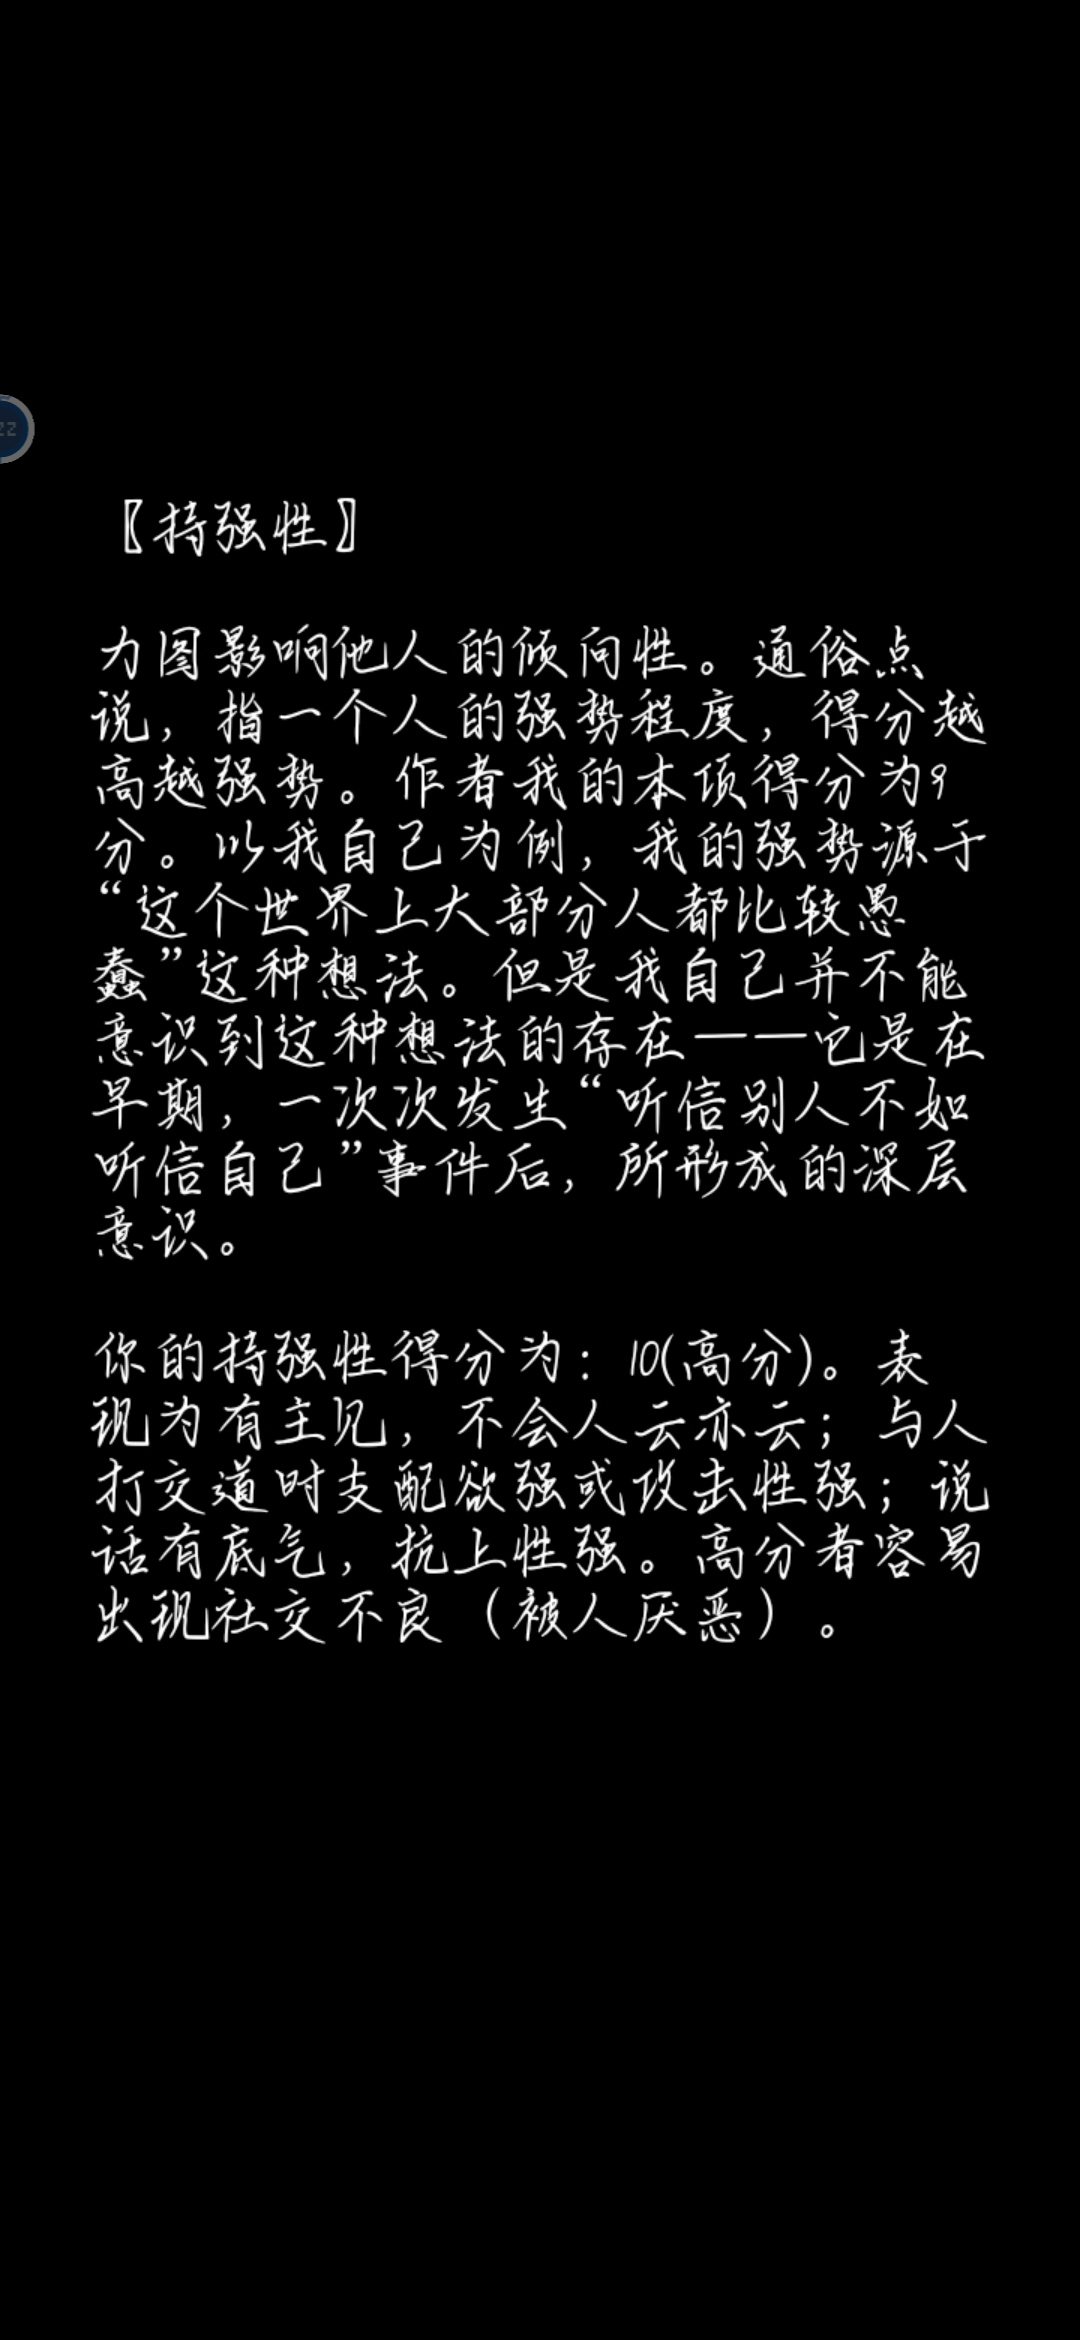 〖持强性〗
力图影响他人的倾向性。通俗点
说，指一个人的强势程度，得分越
高越强势。作者我的本项得分为9
分。以我自己为例，我的强势源于
“这个世界上大部分人都比较愚
蠢”这种想法。但是我自己并不能
意识到这种想法的存在——它是在
早期，一次次发生“听信别人不如
听信自己”事件后，所形成的深层
意识。
你的持强性得分为：10(高分)。表
现为有主见，不会人云亦云；与人
打交道时支配欲强或攻击性强；说
话有底气，抗上性强。高分者容易
出现社交不良（被人厌恶）。